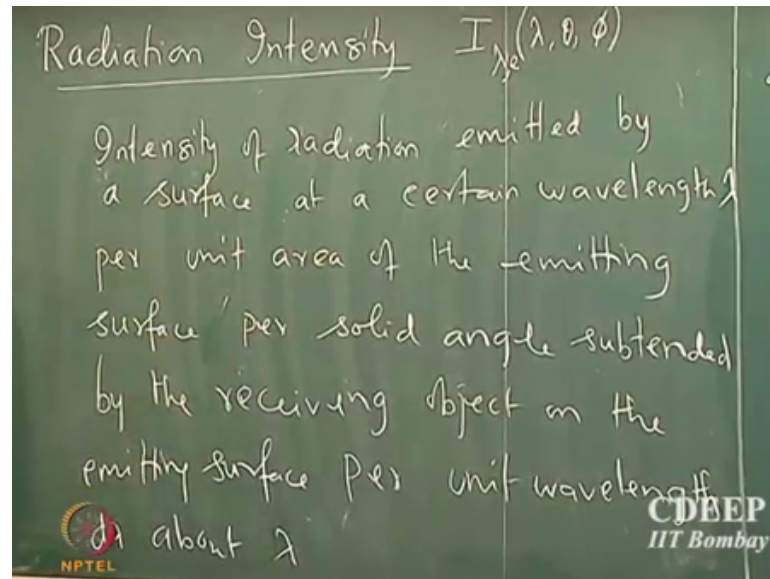 Radiation Intensity I_λe(λ, θ, φ)
Intensity of radiation emitted by
a surface at a certain wavelength λ
per unit area of the emitting
surface per solid angle subtended
by the receiving object on the
emitting surface per unit wavelength
dλ about λ
CDEEP
IIT Bombay
NPTEL